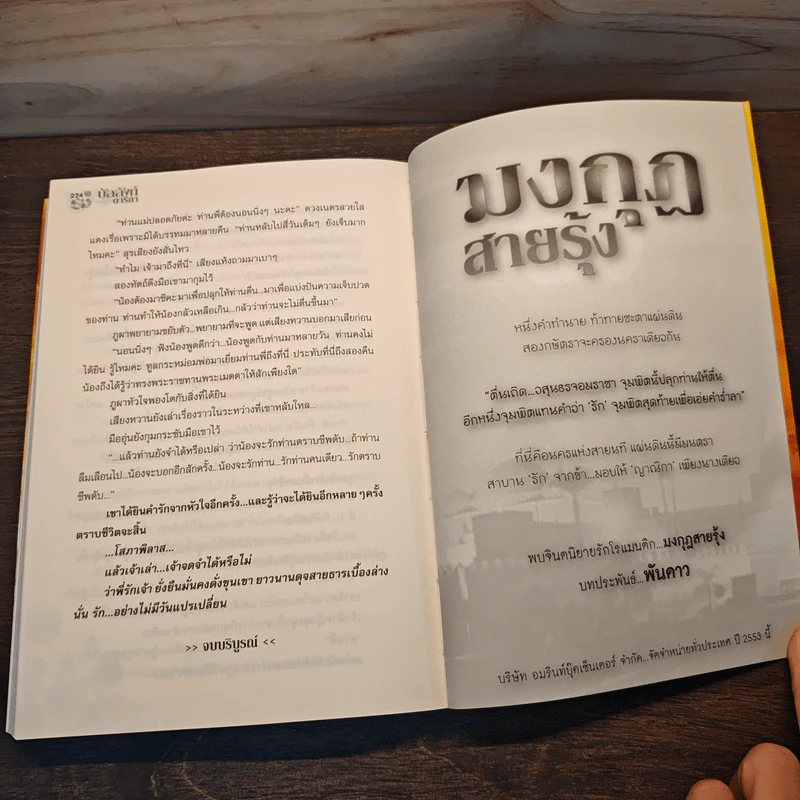 274
บัลลังก์
ดาริกา
"ท่านแม่ปลอดภัยค่ะ ท่านพี่ต้องนอนนิ่งๆ นะคะ" ดวงเนตรสวยใส
แดงเรื่อเพราะมิได้บรรทมมาหลายคืน "ท่านหลับไปสี่วันเต็มๆ ยังเจ็บมาก
ไหมคะ" สุรเสียงยังสั่นไหว
"ทำไม เจ้ามาถึงที่นี่" เสียงแห้งถามมาเบาๆ
สองหัตถ์ดึงมือเขามากุมไว้
"น้องต้องมาซิคะมาเพื่อปลุกให้ท่านตื่น...มาเพื่อแบ่งปันความเจ็บปวด
ของท่าน ท่านทำให้น้องกลัวเหลือเกิน...กลัวว่าท่านจะไม่ตื่นขึ้นมา"
ภูผาพยายามขยับตัว...พยายามที่จะพูด แต่เสียงหวานบอกมาเสียก่อน
"นอนนิ่งๆ ฟังน้องพูดดีกว่า...น้องพูดกับท่านมาหลายวัน ท่านคงไม่
ได้ยิน รู้ไหมคะ ทูลกระหม่อมพ่อมาเยี่ยมท่านพี่ถึงที่นี่ ประทับที่นี่ถึงสองคืน
น้องถึงได้รู้ว่าทรงพระราชทานพระเมตตาให้สักเพียงใด"
ภูผาหัวใจพองโตกับสิ่งที่ได้ยิน
เสียงหวานยังเล่าเรื่องราวในระหว่างที่เขาหลับใหล...
มืออุ่นยังกุมกระชับมือเขาไว้
"...แล้วท่านยังจำได้หรือเปล่า ว่าน้องจะรักท่านตราบชีพดับ...ถ้าท่าน
ลืมเลือนไป...น้องจะบอกอีกสักครั้ง...น้องจะรักท่าน...รักท่านคนเดียว...รักตราบ
ชีพดับ..."
เขาได้ยินคำรักจากหัวใจอีกครั้ง...และรู้ว่าจะได้ยินอีกหลายๆครั้ง
ตราบชีวิตจะสิ้น
...โสภาพิลาส...
แล้วเจ้าเล่า...เจ้าจดจำได้หรือไม่
ว่าพี่รักเจ้า ยั่งยืนมั่นคงดั่งขุนเขา ยาวนานดุจสายธารเบื้องล่าง
นั่น รัก...อย่างไม่มีวันแปรเปลี่ยน
>> จบบริบูรณ์ <<
มงกุฎ
สายรุ้ง
หนึ่งคำทำนาย ท้าทายชะตาแผ่นดิน
สองกษัตราจะครองนคราเดียวกัน
"ตื่นเถิด...วสุนธรจอมราชา จุมพิตนี้ปลุกท่านให้ตื่น
อีกหนึ่งจุมพิตแทนคำว่า 'รัก' จุมพิตสุดท้ายเพื่อเอ่ยคำร่ำลา"
ที่นี่คือนครแห่งสายนที แผ่นดินนี้มีมนตรา
สาบาน 'รัก' จากข้า...มอบให้ 'ญาณิกา' เพียงนางเดียว
พบจินตนิยายรักโรแมนติก...มงกุฎสายรุ้ง
บทประพันธ์...พันดาว
บริษัท อมรินท์บุ๊คเซ็นเตอร์ จำกัด...จัดจำหน่ายทั่วประเทศ ปี 2553 นี้